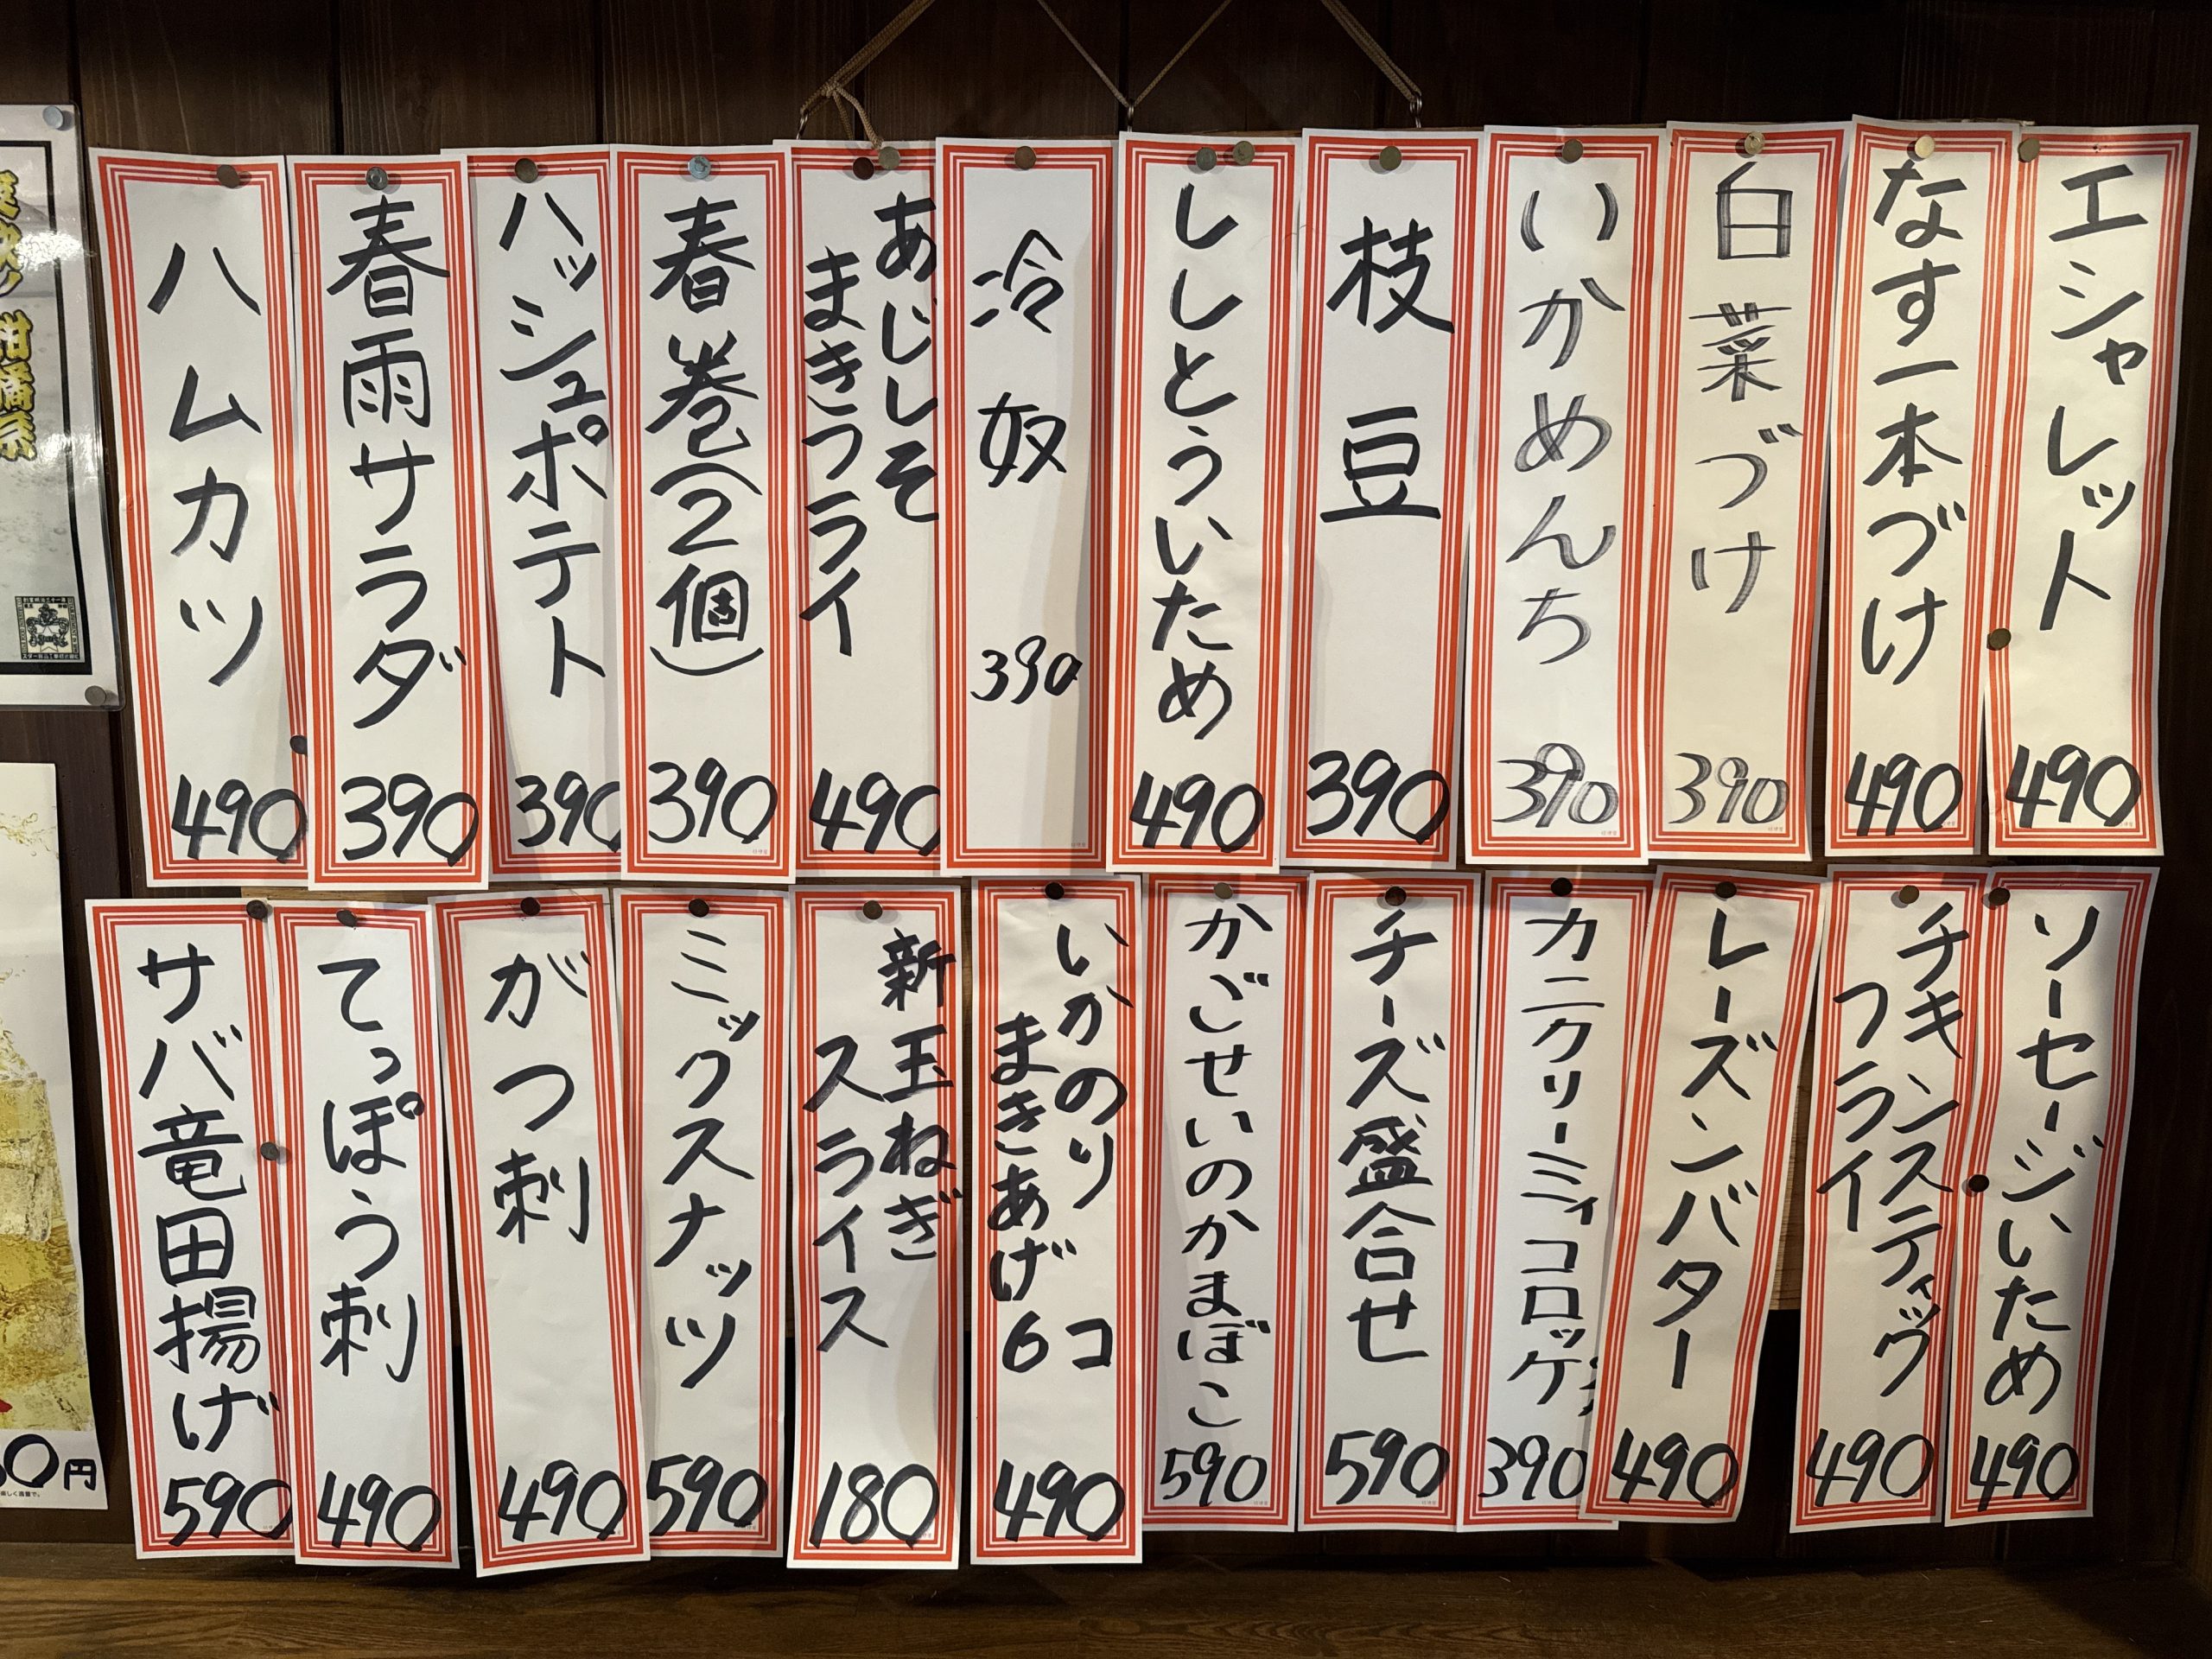 エシャレット
490
なす一本づけ
490
白菜づけ
390
いかめんち
390
枝豆
390
ししとういため
490
冷奴
390
あじしそ
まきフライ
490
春巻(2個)
390
ハッシュポテト
390
春雨サラダ
390
ハムカツ
490
ソーセージいため
490
チキンスティック
フライ
490
レーズンバター
490
カニクリーミィコロッケ
390
チーズ盛合せ
590
かごせいのかまぼこ
590
いかのり
まきあげ
6コ
490
新玉ねぎ
スライス
180
ミックスナッツ
590
がつ刺
490
てっぽう刺
490
サバ竜田揚げ
590
0円